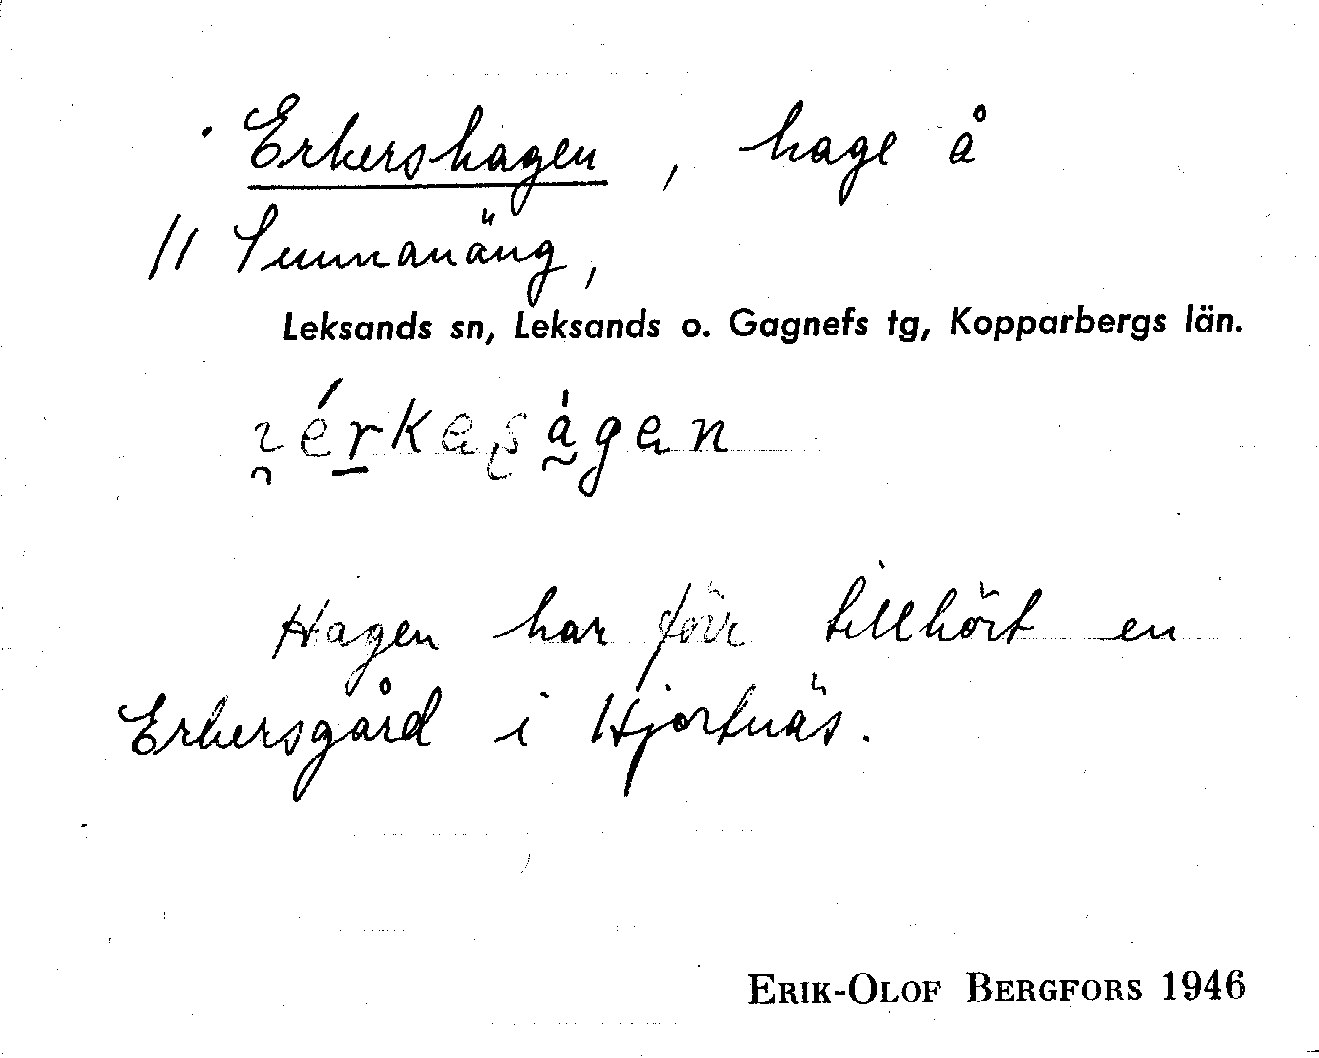 Erkershagen, hage å
// Sunnanäng,
Leksands sn, Leksands o. Gagnefs tg, Kopparbergs län.
Hagen har förr tillhört en
Erkersgård i Hjortnäs.
ERIK-OLOF BERGFORS 1946